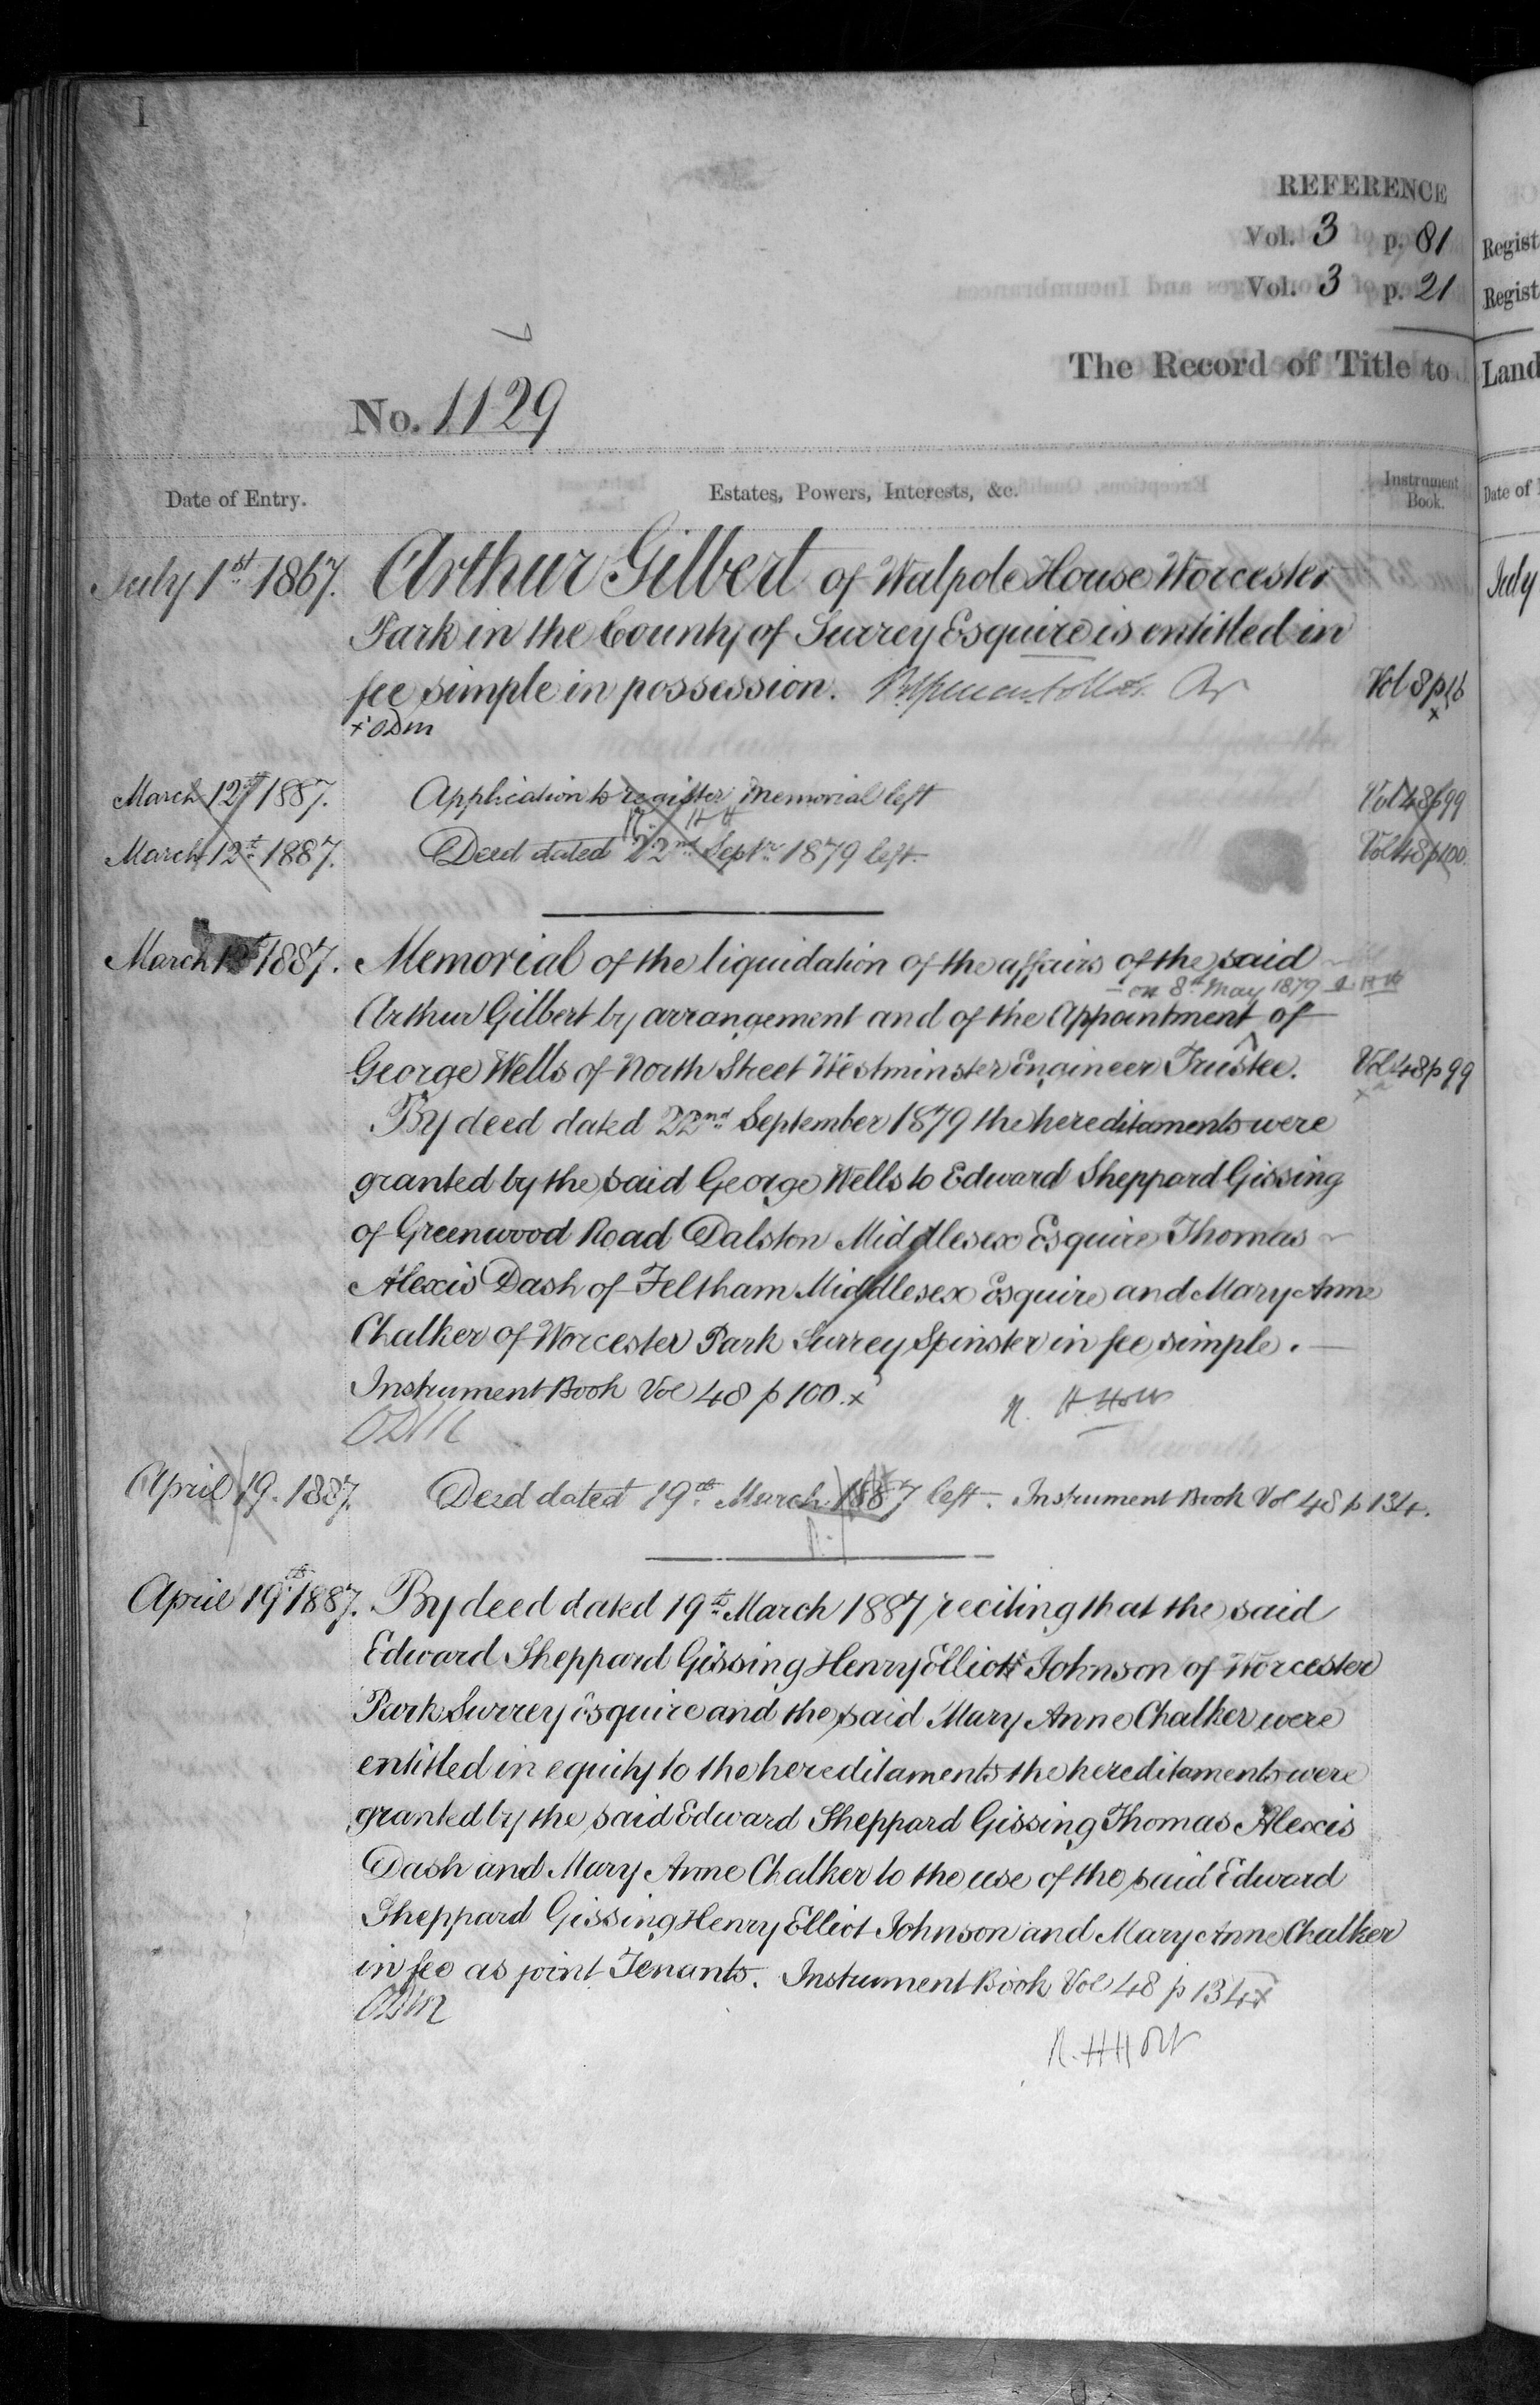 1
REFERENCE
Vol. 3 p. 81
Vol. 3 p. 21
The Record of Title to
No. 1129
Date of Entry. Estates, Powers, Interests, &c. Instrument Book.
July 1st 1867. Arthur Gilbert of Walpole House Worcester
Park in the County of Surrey Esquire is entitled in
fee simple in possession. Vol 8 p 16
x ODM x
March 12th 1887. Application to register Memorial left Vol 48 p 99
R. H H
March 12th 1887. Deed dated 22nd Septr 1879 left. Vol 48 p 100
March 12th 1887. Memorial of the liquidation of the affairs of the said
on 8th May 1879
Arthur Gilbert by arrangement and of the Appointment ^ of
George Wells of North Street Westminster Engineer Trustee. Vol 48 p 99
x
By deed dated 22nd September 1879 the hereditaments were
granted by the said George Wells to Edward Sheppard Gissing
of Greenwood Road Dalston Middlesex Esquire Thomas
Alexis Dash of Feltham Middlesex Esquire and Mary Anne
Chalker of Worcester Park Surrey Spinster in fee simple.
Instrument Book Vol 48 p 100. x
ODM R. H. Holt
April 19. 1887. Deed dated 19th March 1887 left. Instrument Book Vol 48 p 134.
April 19th 1887. By deed dated 19th March 1887 reciting that the said
Edward Sheppard Gissing Henry Elliott Johnson of Worcester
Park Surrey Esquire and the said Mary Anne Chalker were
entitled in equity to the hereditaments the hereditaments were
granted by the said Edward Sheppard Gissing Thomas Alexis
Dash and Mary Anne Chalker to the use of the said Edward
Sheppard Gissing Henry Elliot Johnson and Mary Anne Chalker
in fee as joint Tenants. Instrument Book Vol 48 p 134 x
ODM
R. H Holt
Regist
Regist
Land
Date of
July